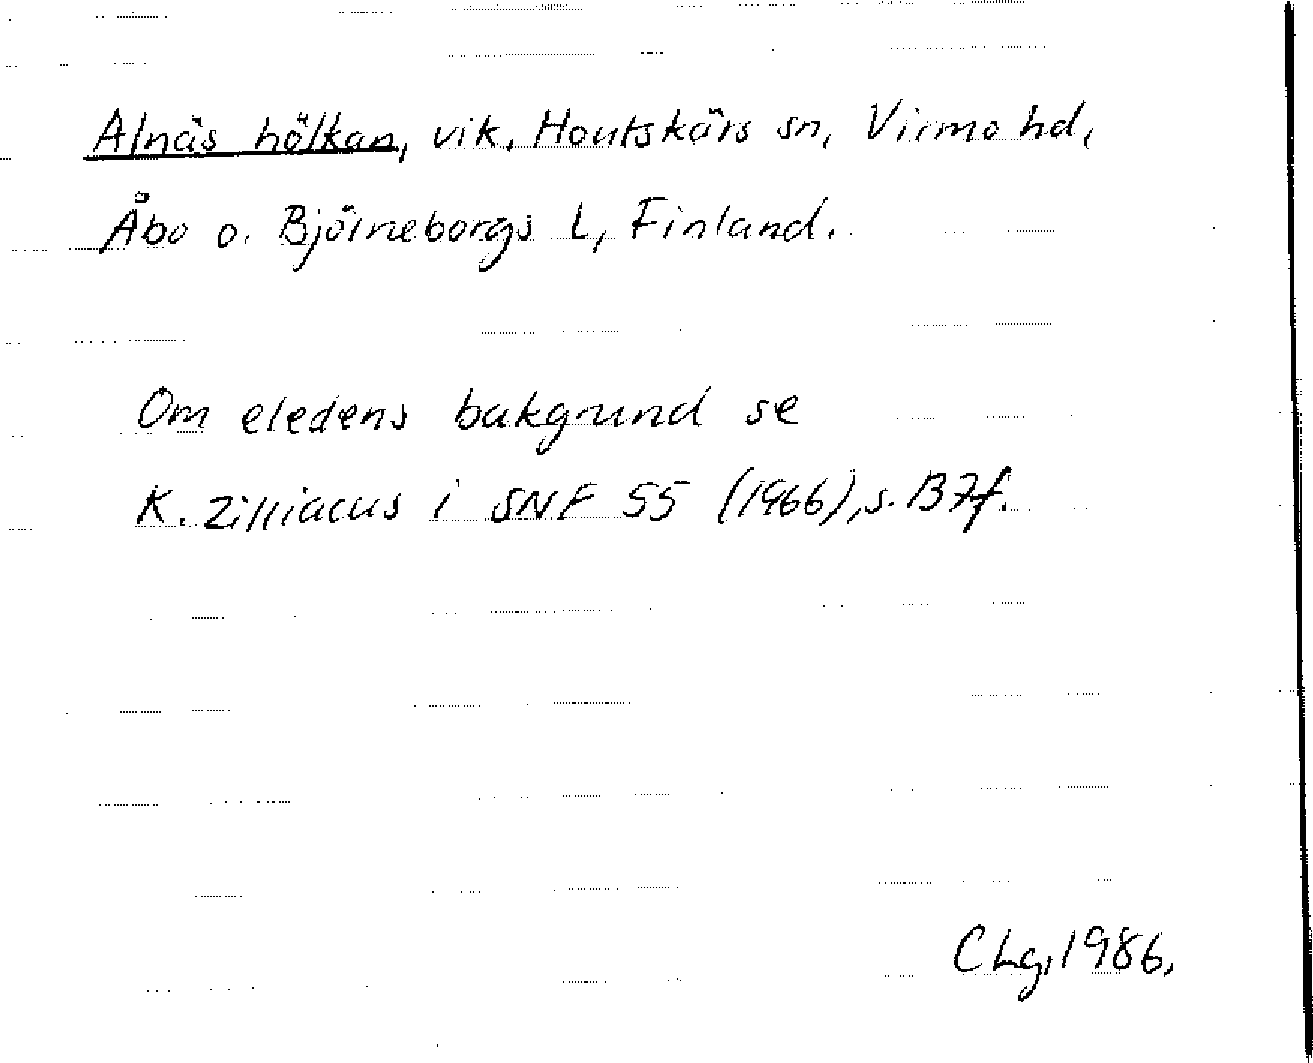 Alnäs hölkan, vik, Houtskärs sn, Virmo hd,
Åbo o. Björneborgs l, Finland.
Om eledens bakgrund se
K. Zilliacus i SNF 55 (1966), s. 137f.
CLg, 1986.